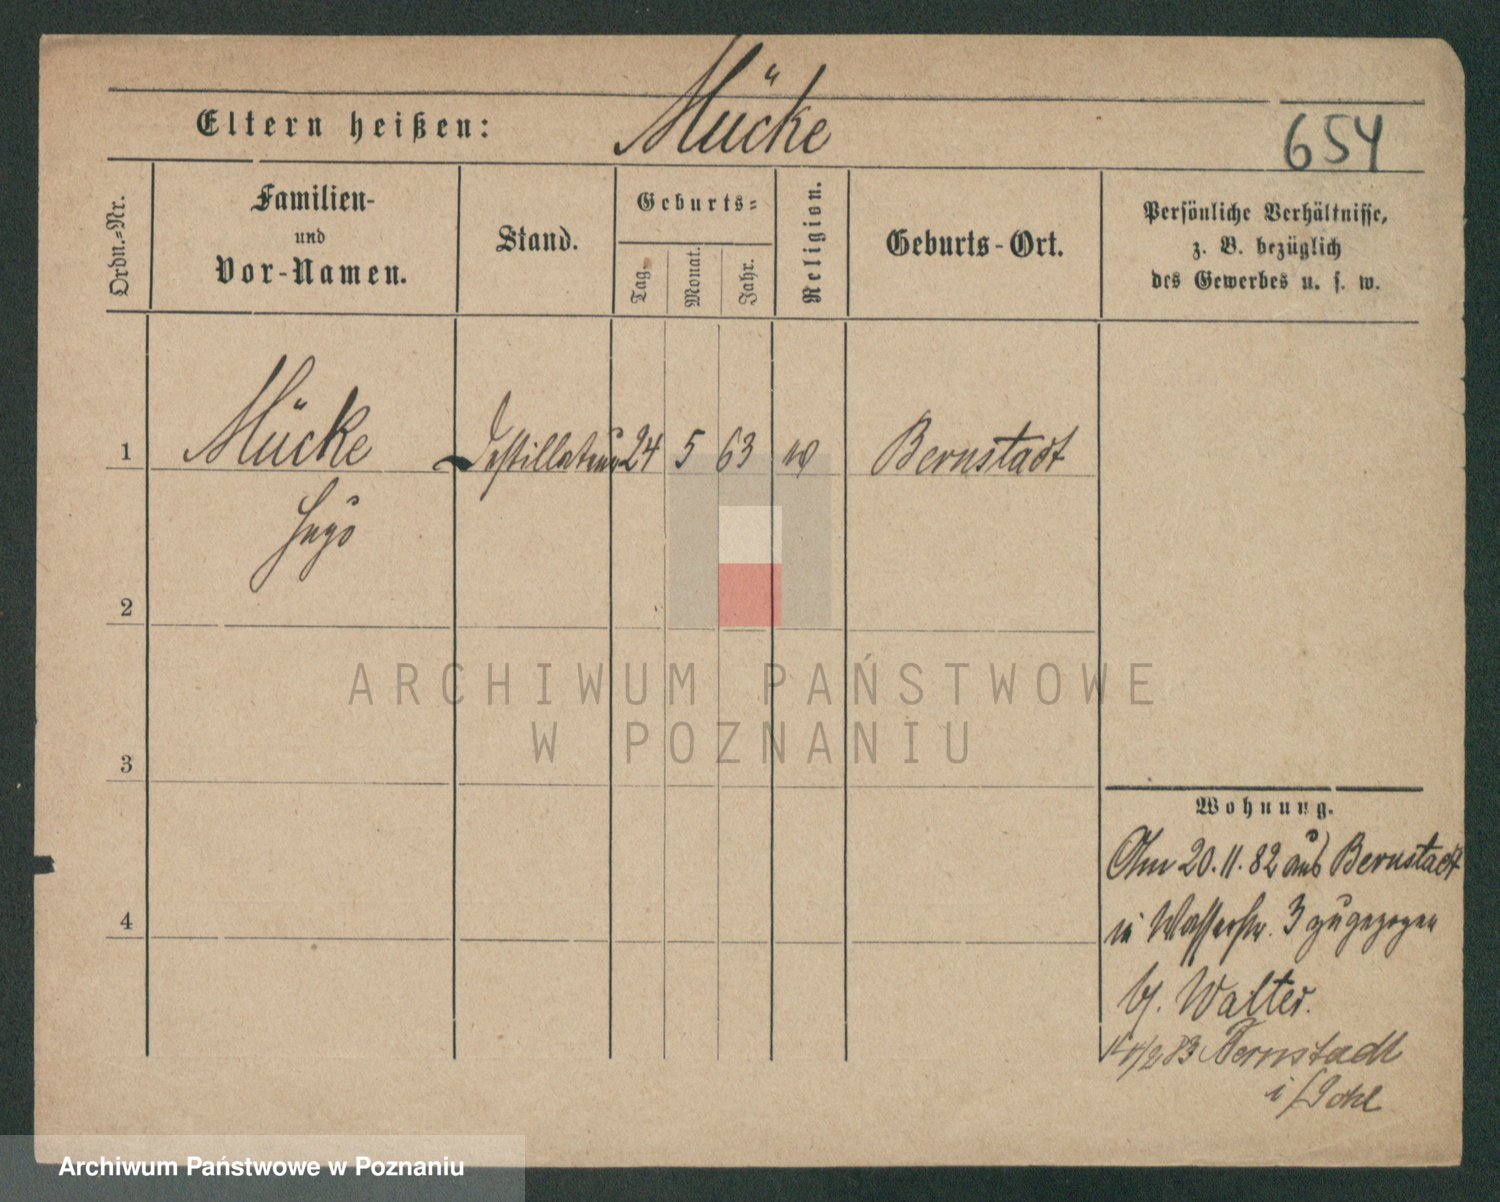 Eltern heißen: Mücke
654
Ordn.-Nr.
Familien-
und
Vor-Namen.
Stand.
Geburts-
Tag.
Monat.
Jahr.
Religion.
Geburts-Ort.
Persönliche Verhältnisse,
z. B. bezüglich
des Gewerbes u. s. w.
1 Mücke Destillateur 24 5 63 Bernstadt
Hugo
2
3
4
Wohnung.
Am 20.11.82 aus Bernstadt
in Wasserstr. 3 zugezogen
b/. Walter.
83 Bernstadt
ARCHIWUM PAŃSTWOWE
W POZNANIU
Archiwum Państwowe w Poznaniu